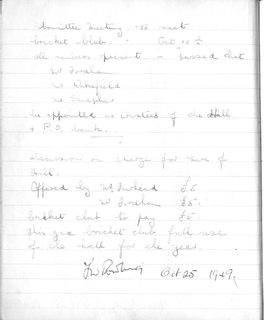 Committee Meeting to meet
Cricket Club - Oct
all members present. - passed that
Mr
Mr
Mr
be appointed as trustees of the Hall.
& P.O. bank.
Discussion on charge for use of
Hall.
Offered by Mr £5
Mr £5
Cricket club to pay £5
this gives Cricket club full use
of the hall for the year.
Oct 25 1949.